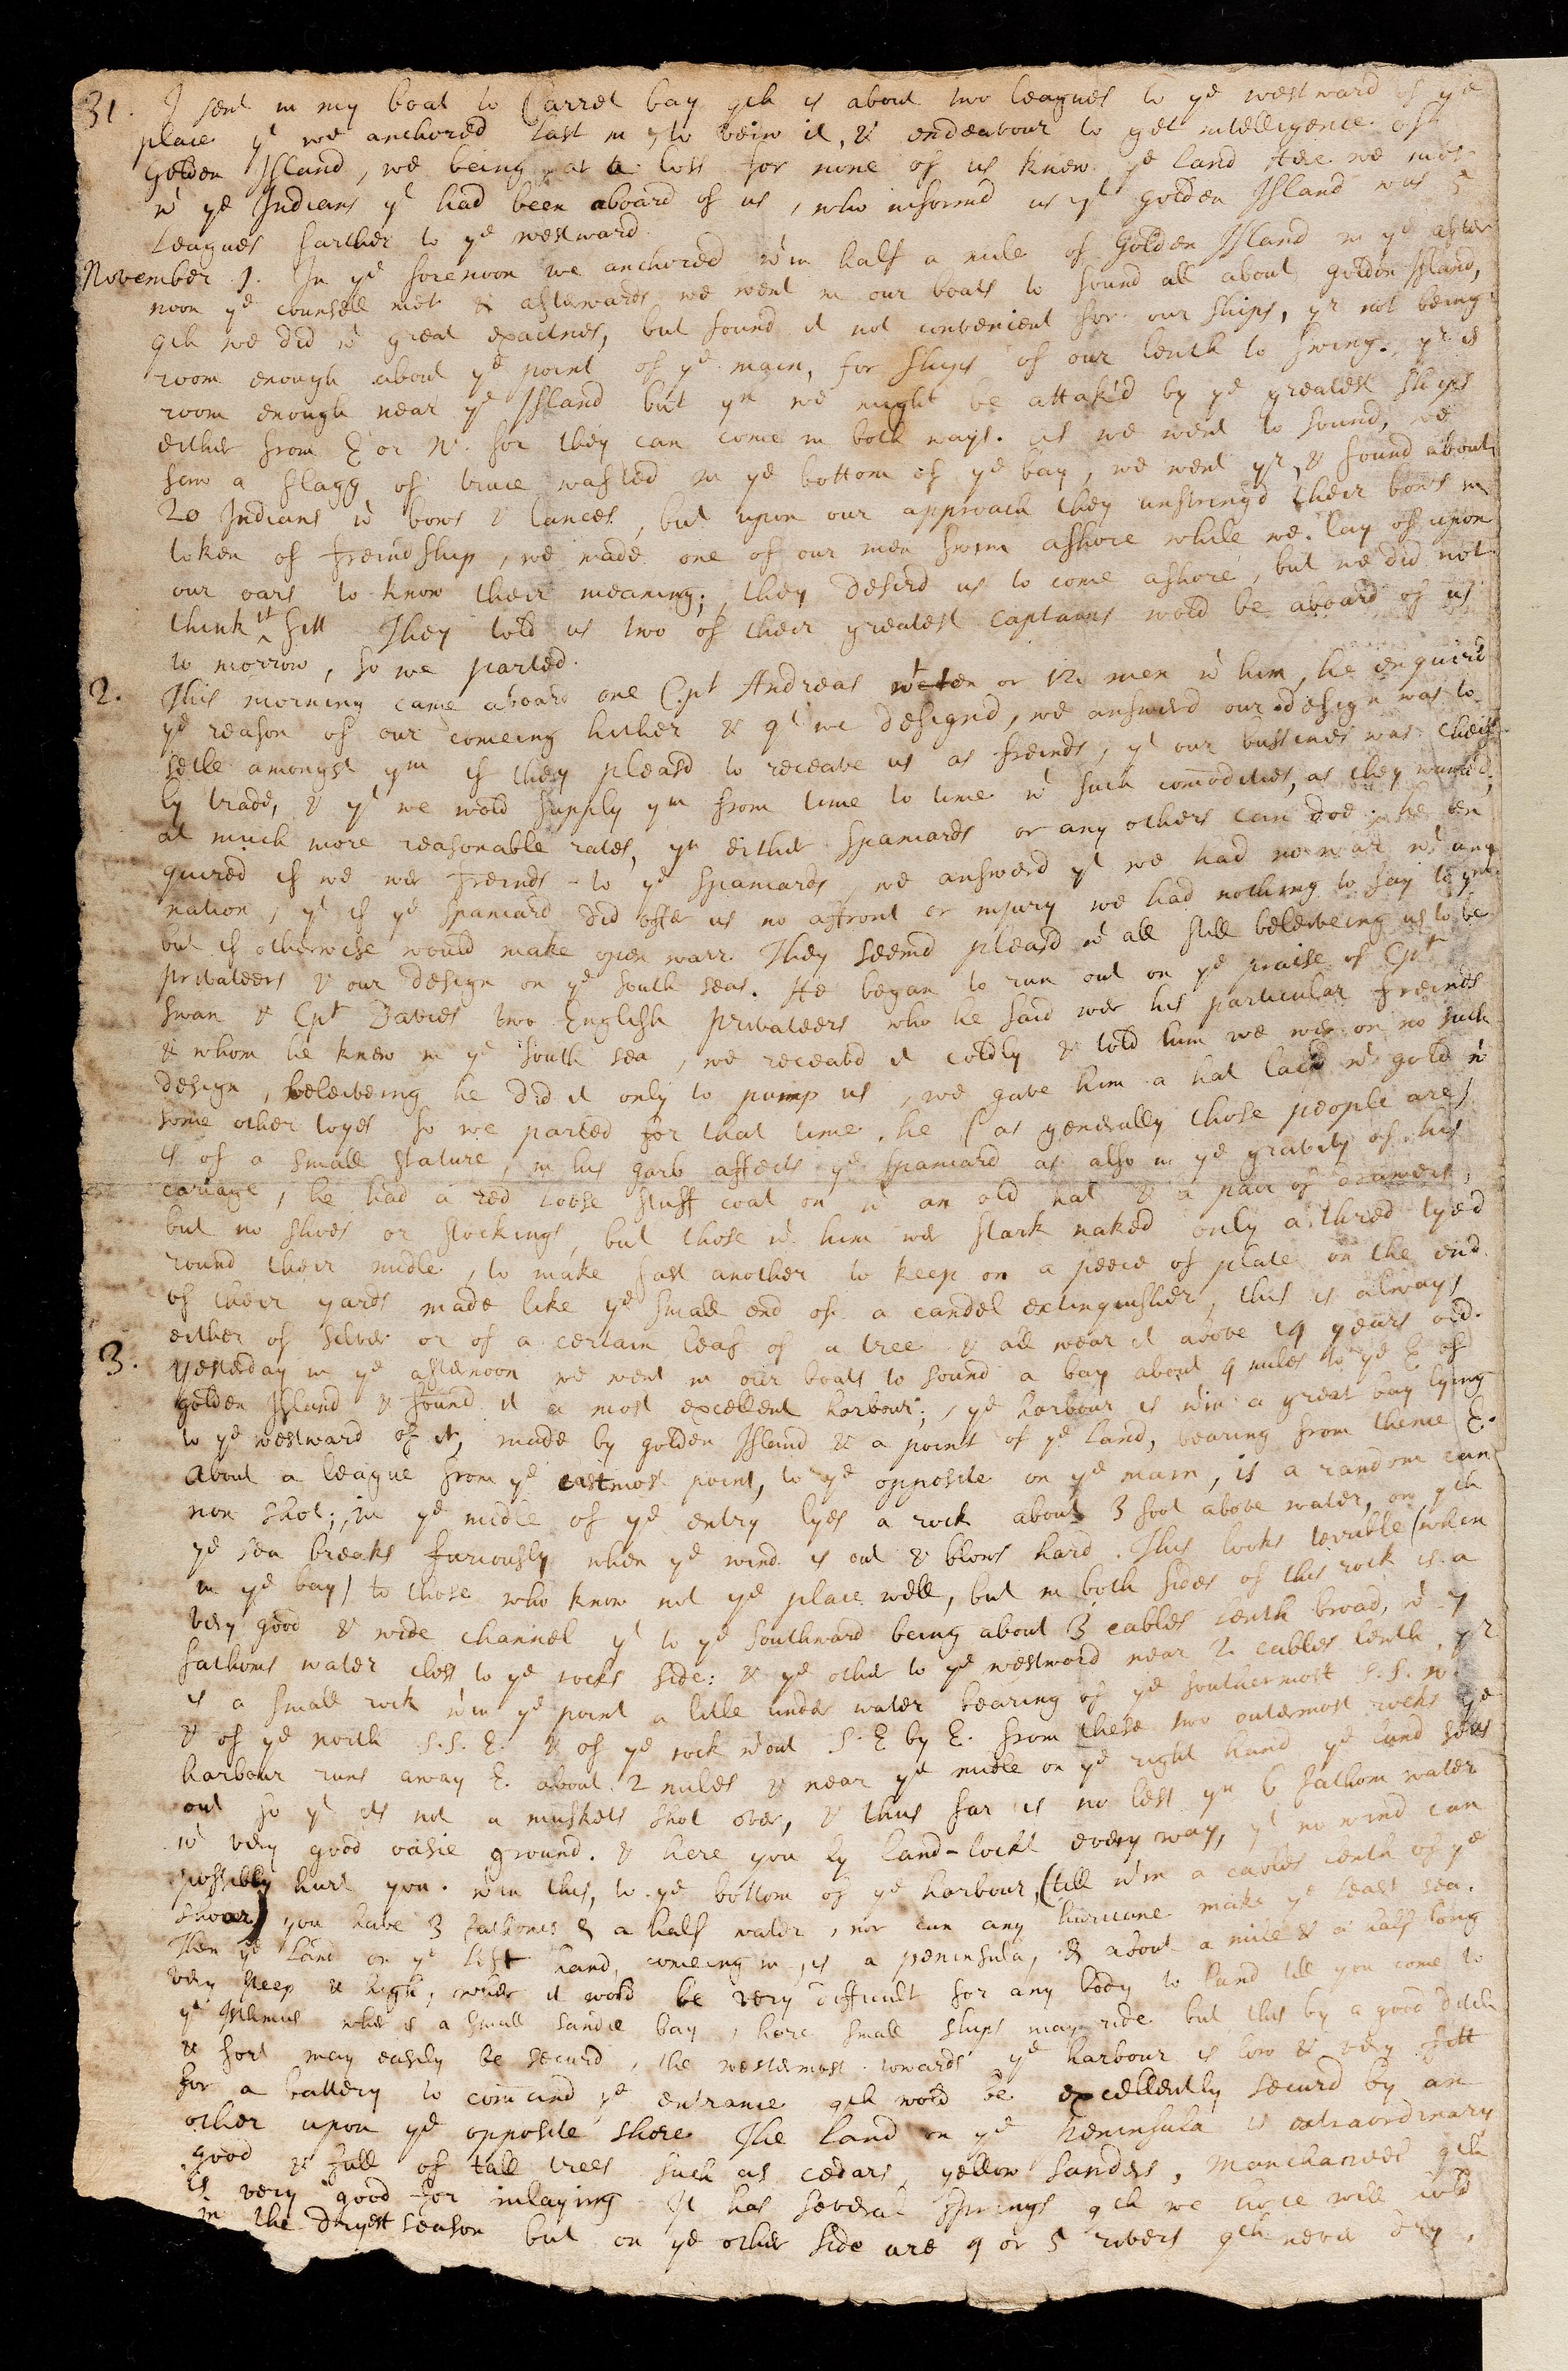 31. I sent in my boat to Carret bay qch is about two leagues to ye westward of ye
place yt we anchored last in, to veiw it, & endeavour to get intelligence of
Golden Island, we being at a loss for none of us knew ye land Here we met
wt ye Indians yt had been aboard of us, who informd us yt golden Island was 5
Leagues farther to ye westward.
November 1. In ye forenoon we anchored wtin half a mile of Golden Island in ye after
noon ye counsell met & afterwards we went in our boats to sound all about golden Island,
qch we did wt great exactnes, but found it not convenient for our ships, yr not being
room enough about ye point of ye main, for ships of our lenth to swing. yr is
room enough near ye Island but yn we might be attak'd by ye greatest ships
either from E or W. for they can come in both ways. as we went to sound, we
saw a flagg of truce wafted in ye bottom of ye bay, we went yr, & found about
20 Indians wt bows & lances, but upon our approach they unstring'd their bows in
token of freindship, we made one of our men swim ashore while we lay of upon
our oars to know their meaning; they desird us to come ashore, but we did not
think it fitt They told us two of their greatest Captains wold be aboard of us
to morrow, so we parted.
2. This morning came aboard one Cpt Andreas wt ten or 12 men wt him, he enquird
ye reason of our comeing hither & qt we designd, we answerd our design was to
setle amongst ym if they pleasd to receave us as freinds, yt our bussines was cheif
ly trade, & yt we wold supply ym from time to time wt such comodities, as they wanted,
at much more reasonable rates, yn either Spaniards or any others can doe. he en
quired if we wer freinds to ye Spaniards, we answerd yt we had no war wt any
nation, yt if ye Spaniard did offer us no affront or injury we had nothing to say to ym
but if otherwise would make open warr. They seemd pleasd wt all still beleiveing us to be
privateers & our design on ye south seas. He began to run out on ye praise of Cpt
Swan & Cpt Davies two English privateers who he said wer his particular freinds
& whom he knew in ye South sea, we receavd it coldly & told him we wer on no such
design, beleiveing he did it only to pump us, we gave him a hat lac'd wt gold wt
some other toyes so we parted for that time. he (as generally those people are)
is of a small stature, in his garb affects ye Spaniard as also in ye gravity of his
cariage, he had a red loose stuff coat on wt an old hat & a pair of drawers,
but no shoes or stockings, but those wt him wer stark naked only a thred tyed
round their midle, to make fast another to keep on a peece of plate on the end
of their yards made like ye small end of a candel extinguisher, this is always
either of silver or of a certain leaf of a tree & all wear it above 14 years old.
3. Yesterday in ye afternoon we went in our boats to sound a bay about 4 miles to ye E of
golden Island & found it a most excellent harbour; ye harbour is wtin a great bay lying
to ye westward of it, made by golden Island & a point of ye land, bearing from thence E.
about a league from ye eastmost point, to ye opposite on ye main, is a random can
non shot; in ye midle of ye entry lyes a rock about 3 foot above water, on qch
ye sea breaks furiously when ye wind is out & blows hard. This looks terrible (when
in ye bay) to those who know not ye place well, but in both sides of this rock is a
very good & wide channel yt to ye southward being about 3 cables lenth broad, wt 7
fathoms water closs to ye rocks side: & ye other to ye westward near 2 cables lenth, yr
is a small rock wtin ye point a litle under water bearing of ye southermost S.S.W.
& of ye north S.S.E. & of ye rock wtout S.E by E. from these two outermost rocks ye
harbour runs away E. about 2 miles & near ye midle on ye right hand ye land setts
out so yt its not a muskets shot over, & thus far is no less yn 6 fathom water
wt very good oasie ground. & here you ly land-lockt every way, yt no wind can
possibly hurt you. wtin this, to ye bottom of ye harbour, (till wtin a cables lenth of ye
shoar) you have 3 fathoms & a half water, nor can any huricane make ye least sea.
Then ye land on ye left hand, comeing in, is a peninsula, & about a mile & a half long
very steep & high, wher it wold be very difficult for any body to land till you come to
ye Isthmus wher is a small sandie bay, here small ships may ride but this by a good ditch
& fort may easily be securd, the westermost towards ye harbour is low & very fitt
for a battery to comand ye entrance qch wold be excellently securd by an
other upon ye opposite shore The land on ye peninsula is extraordinary
good & full of tall trees such as cedars yellow sanders, Manchaneel qch
is very good for inlaying It has several springs qch we hope will hold
in the dryest season but on ye other side are 4 or 5 rivers qch never dry,